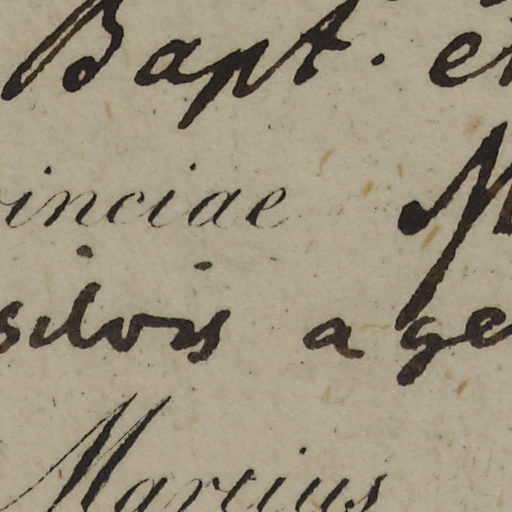 Bapt. et
vinciae M
silvis age
Martius